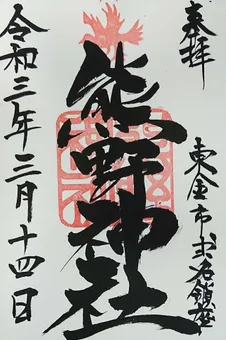 奉拝
東金市武名鎮座
熊野神社
令和三年三月十四日